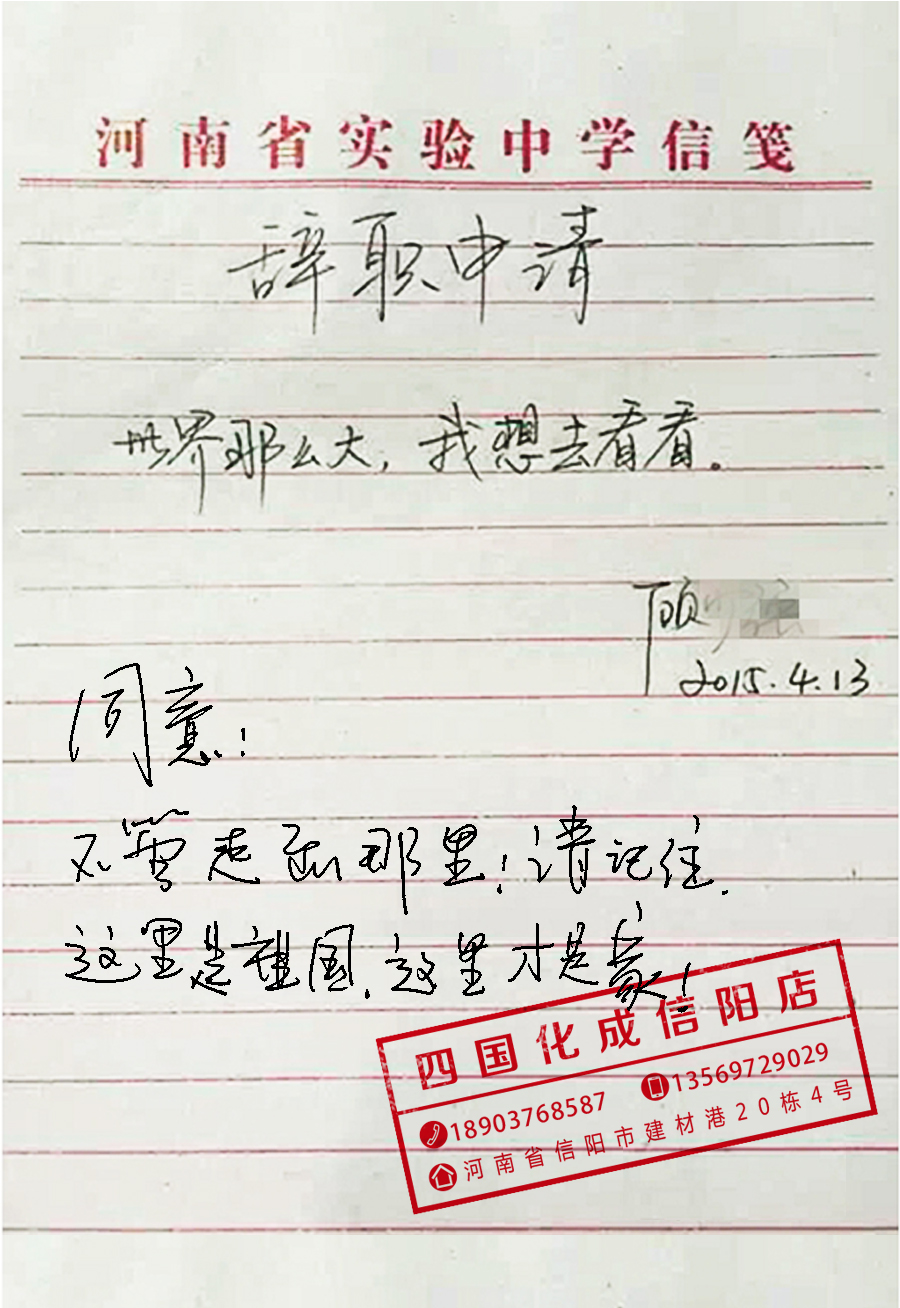 河南省实验中学信笺
辞职申请
世界那么大，我想去看看。
顾
2015.4.13
同意！
不管走到那里！请记住.
这里是祖国.这里才是家！
四国化成信阳店
18903768587 13569729029
河南省信阳市建材港20栋4号